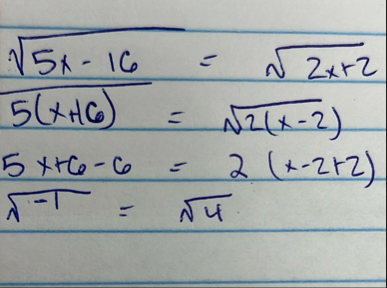 √5x - 16 = √2x+2
√5(x+16) = √2(x-2)
5x+6-6 = 2(x-2+2)
√-1 = √4